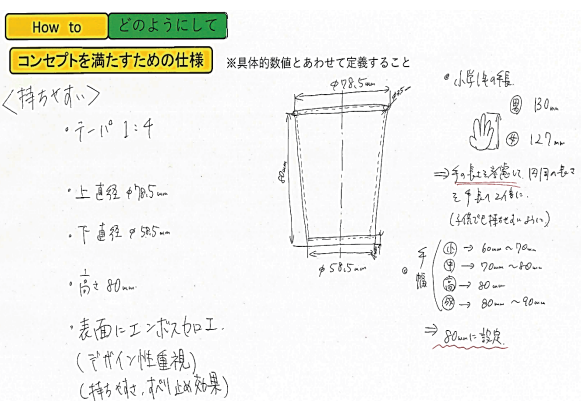 How to
どのようにして
コンセプトを満たすための仕様
※具体的数値とあわせて定義すること
〈持ちやすい〉
・テーパ 1:4
・上直径 φ78.5mm
・下直径 φ58.5mm
・高さ 80mm
・表面にエンボス加工.
(デザイン性重視)
(持ちやすさ、すべり止め効果)
φ78.5mm
80mm
φ58.5mm
・小学1年の手長
男 130mm
女 127mm
⇒手の長さを考慮して 円周の長さ
を手長の2倍に.
(子供でも持ちやすいように)
手幅
小 → 60mm〜70mm
中 → 70mm〜80mm
高 → 80mm
→ 80mm〜90mm
⇒ 80mmに設定.